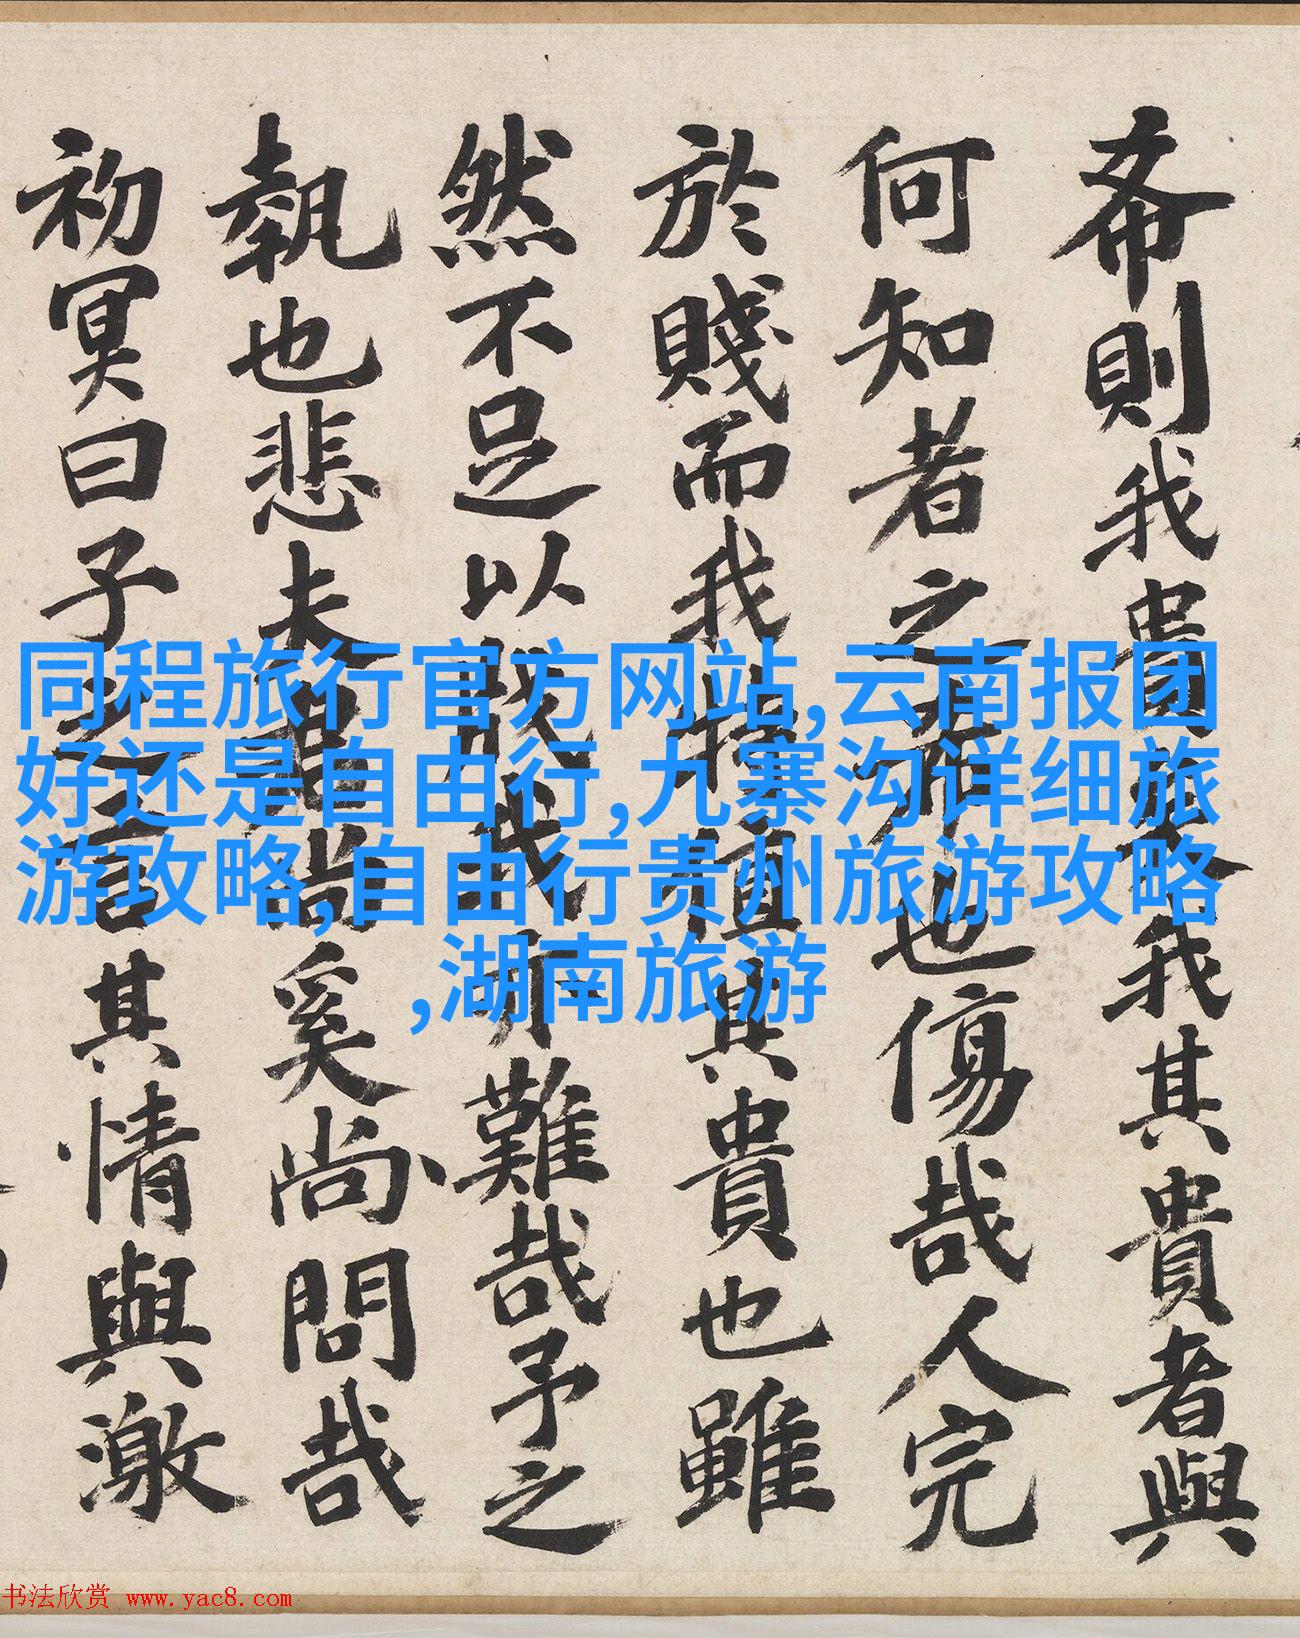 希則我貴矣我其貴者與
何知者之也傷哉人完
於賤而我其貴也雖
然不足以戕我難哉予之
執也悲夫尚奚尚問哉
初冥曰子之言其情與激
同程旅行官方网站,云南报团
好还是自由行,九寨沟详细旅
游攻略,自由行贵州旅游攻略
,湖南旅游
书法欣赏 www.yac8.com